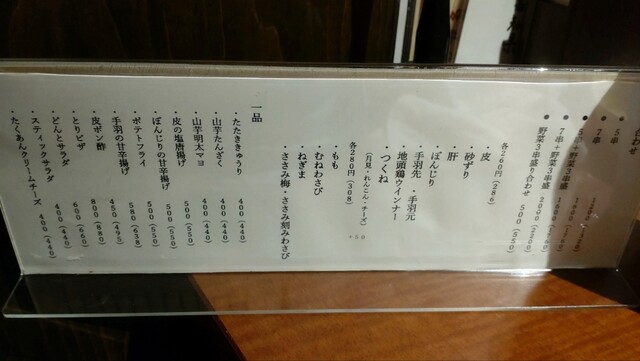 わせ
・5串
・7串
・5串＋野菜3串盛
・7串＋野菜3串盛 2000(2200)
・野菜3串盛り合わせ 500(550)
各260円(286)
・皮
・砂ずり
・肝
・ぼんじり
・手羽先・手羽元
・地頭鶏ウインナー
・つくね
(月見・れんこん・チーズ)
+50
各280円(308)
・もも
・むねわさび
・ねぎま
・ささみ梅・ささみ刻みわさび
一品
・たたききゅうり 400(440)
・山芋たんざく 400(440)
・山芋明太マヨ 400(440)
・皮の塩唐揚げ 500(550)
・ぼんじりの甘辛揚げ 500(550)
・ポテトフライ 580(638)
・手羽の甘辛揚げ 450(495)
・皮ポン酢 800(880)
・とりピザ 600(660)
・どんとサラダ 400(440)
・スティックサラダ
・たくあんクリームチーズ 400(440)